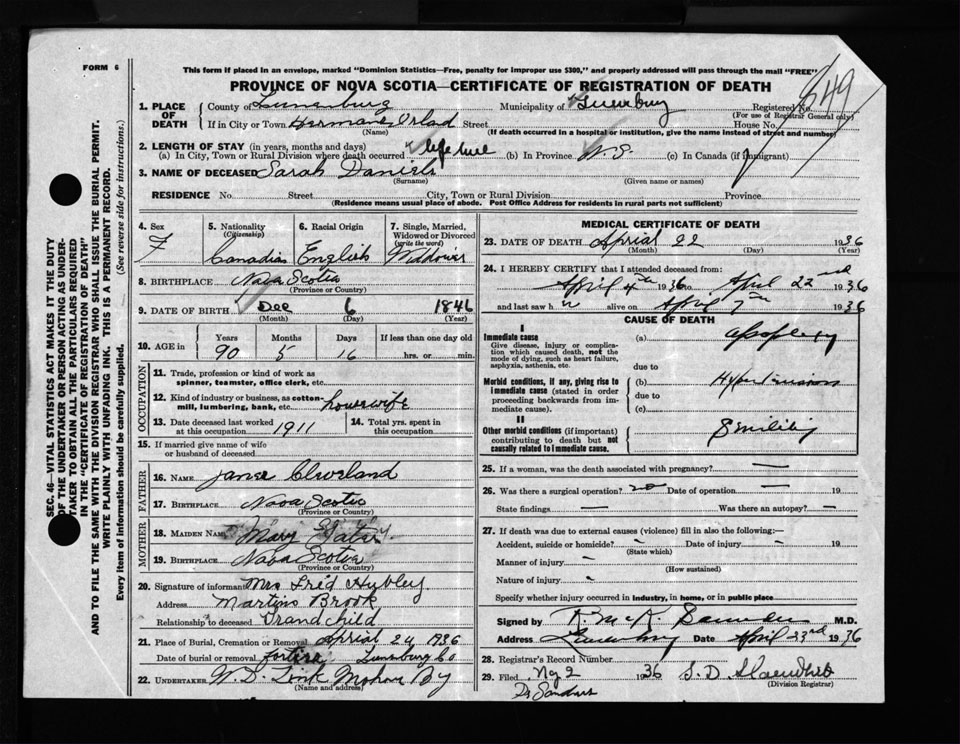 FORM 6
This form if placed in an envelope, marked "Dominion Statistics—Free, penalty for improper use $300," and properly addressed will pass through the mail "FREE"
PROVINCE OF NOVA SCOTIA—CERTIFICATE OF REGISTRATION OF DEATH
849
1. PLACE OF DEATH County of Lunenburg Municipality of Registered No.
(For use of Registrar General only)
If in City or Town Street House No.
(Name) (If death occurred in a hospital or institution, give the name instead of street and number)
2. LENGTH OF STAY (in years, months and days)
(a) In City, Town or Rural Division where death occurred life time (b) In Province N.S. (c) In Canada (if immigrant)
3. NAME OF DECEASED Sarah Daniels
(Surname) (Given name or names)
RESIDENCE No. Street City, Town or Rural Division Province
(Residence means usual place of abode. Post Office Address for residents in rural parts not sufficient)
4. Sex 5. Nationality (Citizenship) 6. Racial Origin 7. Single, Married, Widowed or Divorced (write the word)
F Canadian English
8. BIRTHPLACE Nova Scotia
(Province or Country)
9. DATE OF BIRTH Dec 6 1846
(Month) (Day) (Year)
10. AGE in Years Months Days If less than one day old
90 5 16 hrs. or min.
OCCUPATION
11. Trade, profession or kind of work as spinner, teamster, office clerk, etc.
12. Kind of industry or business, as cotton-mill, lumbering, bank, etc. housewife
13. Date deceased last worked at this occupation 1911 14. Total yrs. spent in this occupation
15. If married give name of wife or husband of deceased
FATHER
16. NAME
17. BIRTHPLACE Nova Scotia
(Province or Country)
MOTHER
18. MAIDEN NAME Mary
19. BIRTHPLACE Nova Scotia
(Province or Country)
20. Signature of informant Mrs Fred Hubley
Address Martins Brook
Relationship to deceased Grand child
21. Place of Burial, Cremation or Removal Aprial 24 1936
Date of burial or removal Lunenburg Co
22. UNDERTAKER W. D.
(Name and address)
MEDICAL CERTIFICATE OF DEATH
23. DATE OF DEATH Aprial 22 1936
(Month) (Day) (Year)
24. I HEREBY CERTIFY that I attended deceased from:
April 4th 1936 to April 22nd 1936
and last saw h alive on April 7th 1936
CAUSE OF DEATH
I
Immediate cause (a)
Give disease, injury or complication which caused death, not the mode of dying, such as heart failure, asphyxia, asthenia, etc.
due to
Morbid conditions, if any, giving rise to immediate cause (stated in order proceeding backwards from immediate cause). (b) Hypertension
due to
(c)
II
Other morbid conditions (if important) contributing to death but not causally related to immediate cause. Senility
25. If a woman, was the death associated with pregnancy? —
26. Was there a surgical operation? no Date of operation — 19
State findings — Was there an autopsy? —
27. If death was due to external causes (violence) fill in also the following:—
Accident, suicide or homicide? Date of injury 19
(State which)
Manner of injury
(How sustained)
Nature of injury
Specify whether injury occurred in industry, in home, or in public place
Signed by M.D.
Address Lunenburg Date April 23rd 1936
28. Registrar's Record Number
29. Filed 1936
(Division Registrar)
SEC. 46—VITAL STATISTICS ACT MAKES IT THE DUTY
OF THE UNDERTAKER OR PERSON ACTING AS UNDER-
TAKER TO OBTAIN ALL THE PARTICULARS REQUIRED
IN THE "CERTIFICATE OF REGISTRATION OF DEATH"
AND TO FILE THE SAME WITH THE DIVISION REGISTRAR WHO SHALL ISSUE THE BURIAL PERMIT.
WRITE PLAINLY WITH UNFADING INK. THIS IS A PERMANENT RECORD.
Every item of information should be carefully supplied. (See reverse side for instructions.)